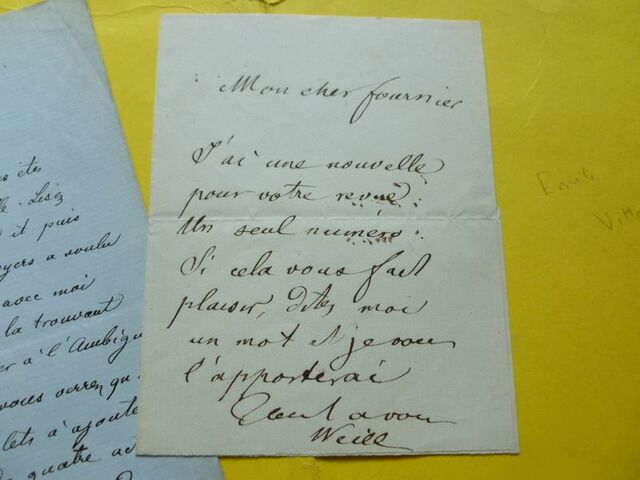 Mon cher fournier
J'ai une nouvelle
pour votre revue
Un seul numéro.
Si cela vous fait
plaisir, dites moi
un mot et je vous
l'apporterai
Tout a vous
Weill
Lisez
it puis
a voulu
avec moi
la trouvant
er à l'Ambigu
vous verrez qu
lets à ajoute
quatre act
Emile